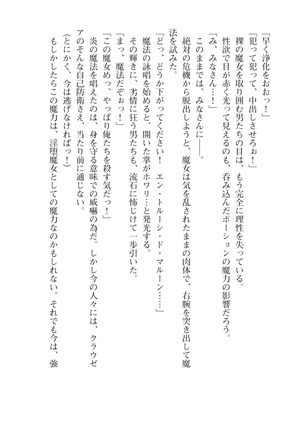 「早く浄化をおおっ！」
「犯って犯って、中出しさせろぉ！」
裸の魔女を取り囲む男たちの目は、もう完全に理性を失っている。
性欲で目が赤く光って見えるのも、呑み込んだポーションの魔力の影響だろう。
「み、みなさんっ！」
このままでは、みなさんに――。
絶対の危機から脱出しようと、魔女は気を乱されたままの肉体で、右腕を突き出して魔
法を試みた。
「どっ、どうか下がってください！　エン・トルーシ・ド・マルーン……」
魔法の詠唱を始めると、開いた掌がホワリ…と発光する。
その輝きに、劣情に狂う男たちも、流石に怖じけて一歩引いた。
「まっ、魔法だぞぉっ！」
「この魔女めっ、やっぱり俺たちを殺す気だっ！」
炎の魔法を唱えたのは、身を守る意味での威嚇の為だ。しかし今の人々には、クラウゼ
アのそんな自己防衛さえ、当たり前に通じない。
（とにかく、今は逃げなければっ！）
もしかしたらこの魔力は、淫堕魔女としての魔力なのかもしれない。それでも今は、強